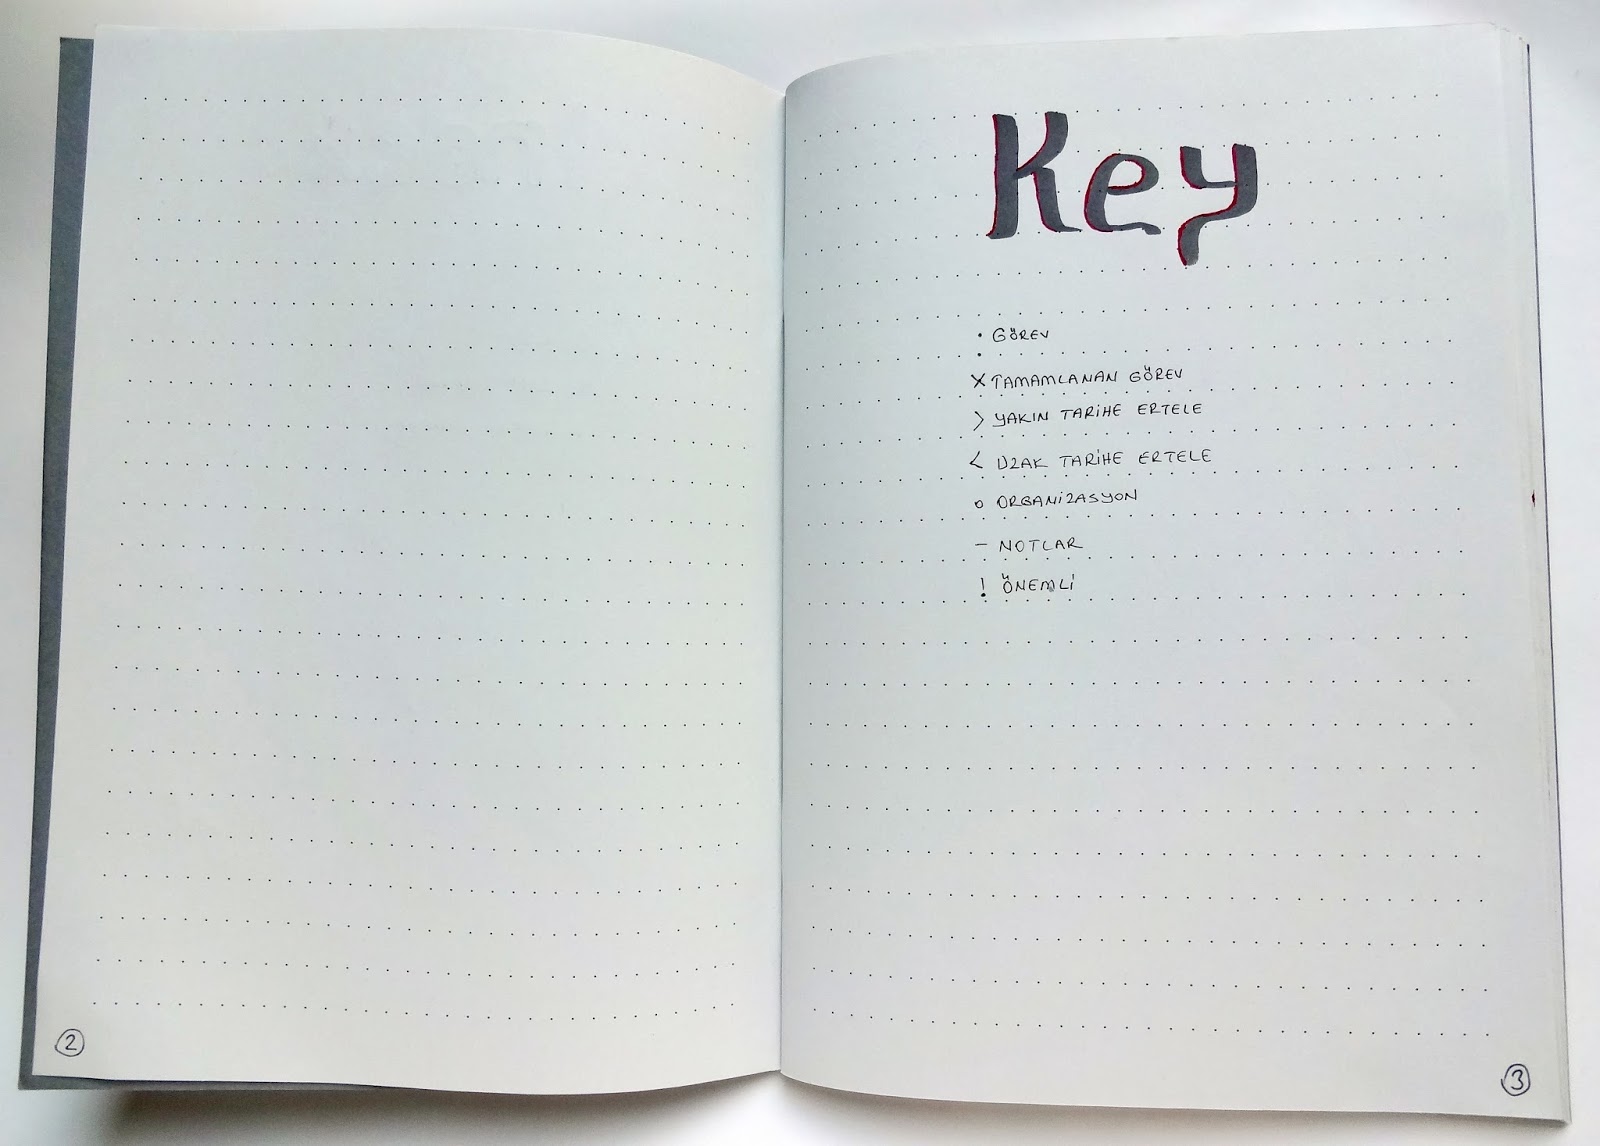 Key
• GÖREV
X TAMAMLANAN GÖREV
> YAKIN TARİHE ERTELE
< UZAK TARİHE ERTELE
o ORGANİZASYON
– NOTLAR
! ÖNEMLİ
2
3